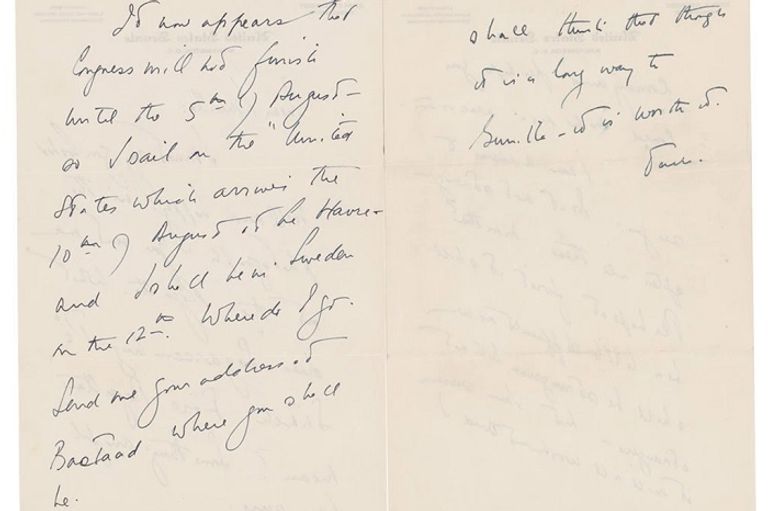 It now appears that
Congress will not finish
until the 5th of August –
so I sail on the "United
States which arrives the
10th of August at Le Havre –
and I shall be in Sweden
on the 12th. Where do I go.
Send me your address at
Bastaad where you shall
be.
shall think that though
it is a long way to
Gunilla – it is worth it.